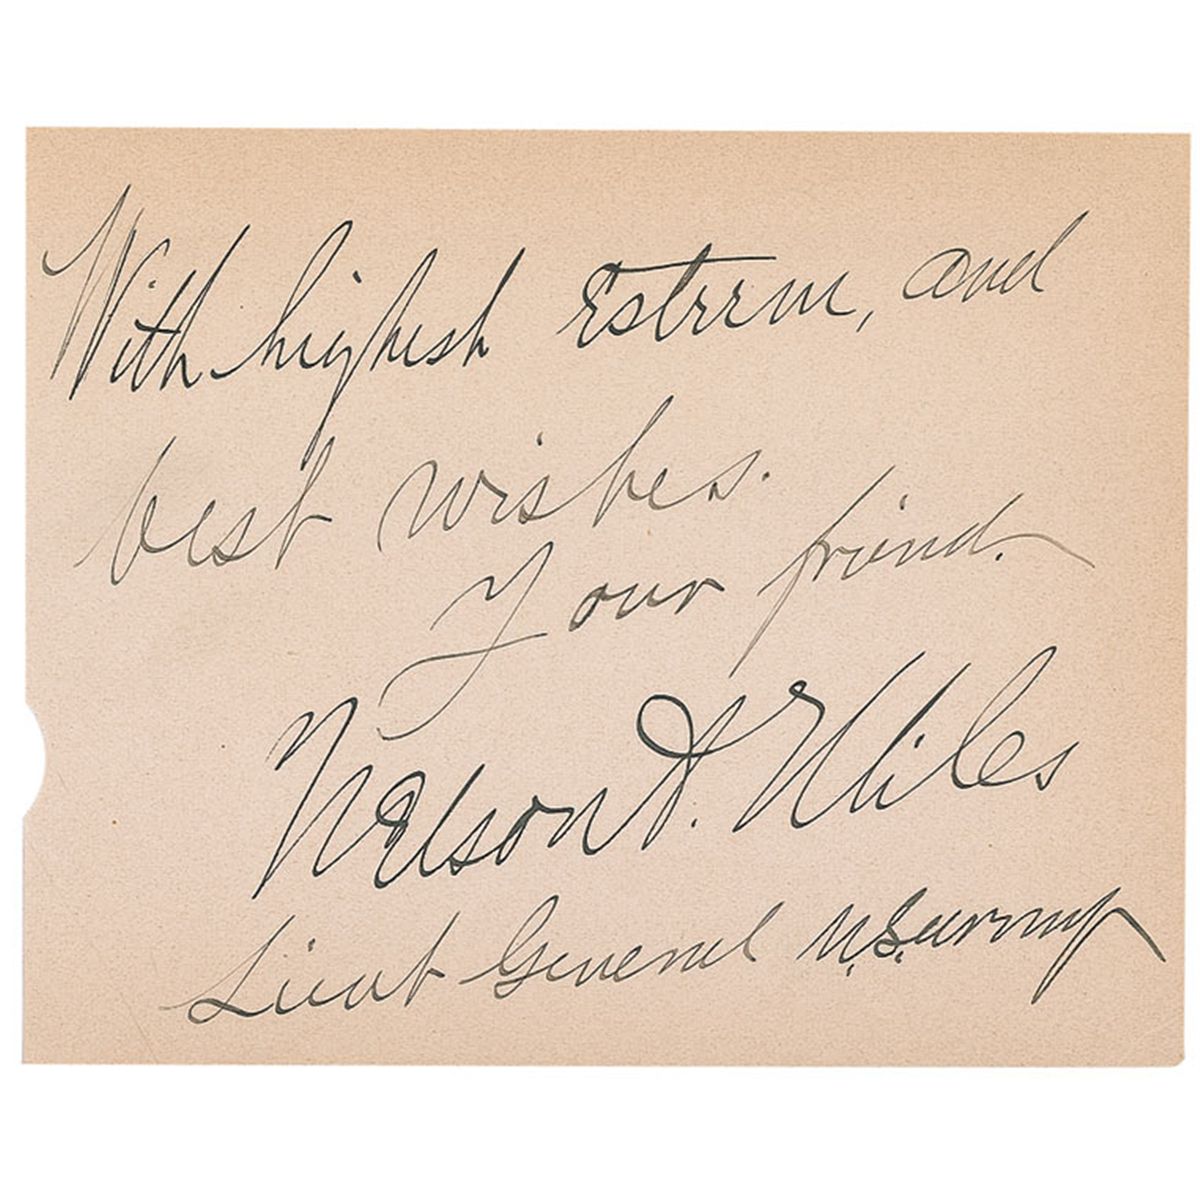 With highest Esteem, and
best wishes.
Your friend.
Nelson A. Miles
Lieut General U.S. Army